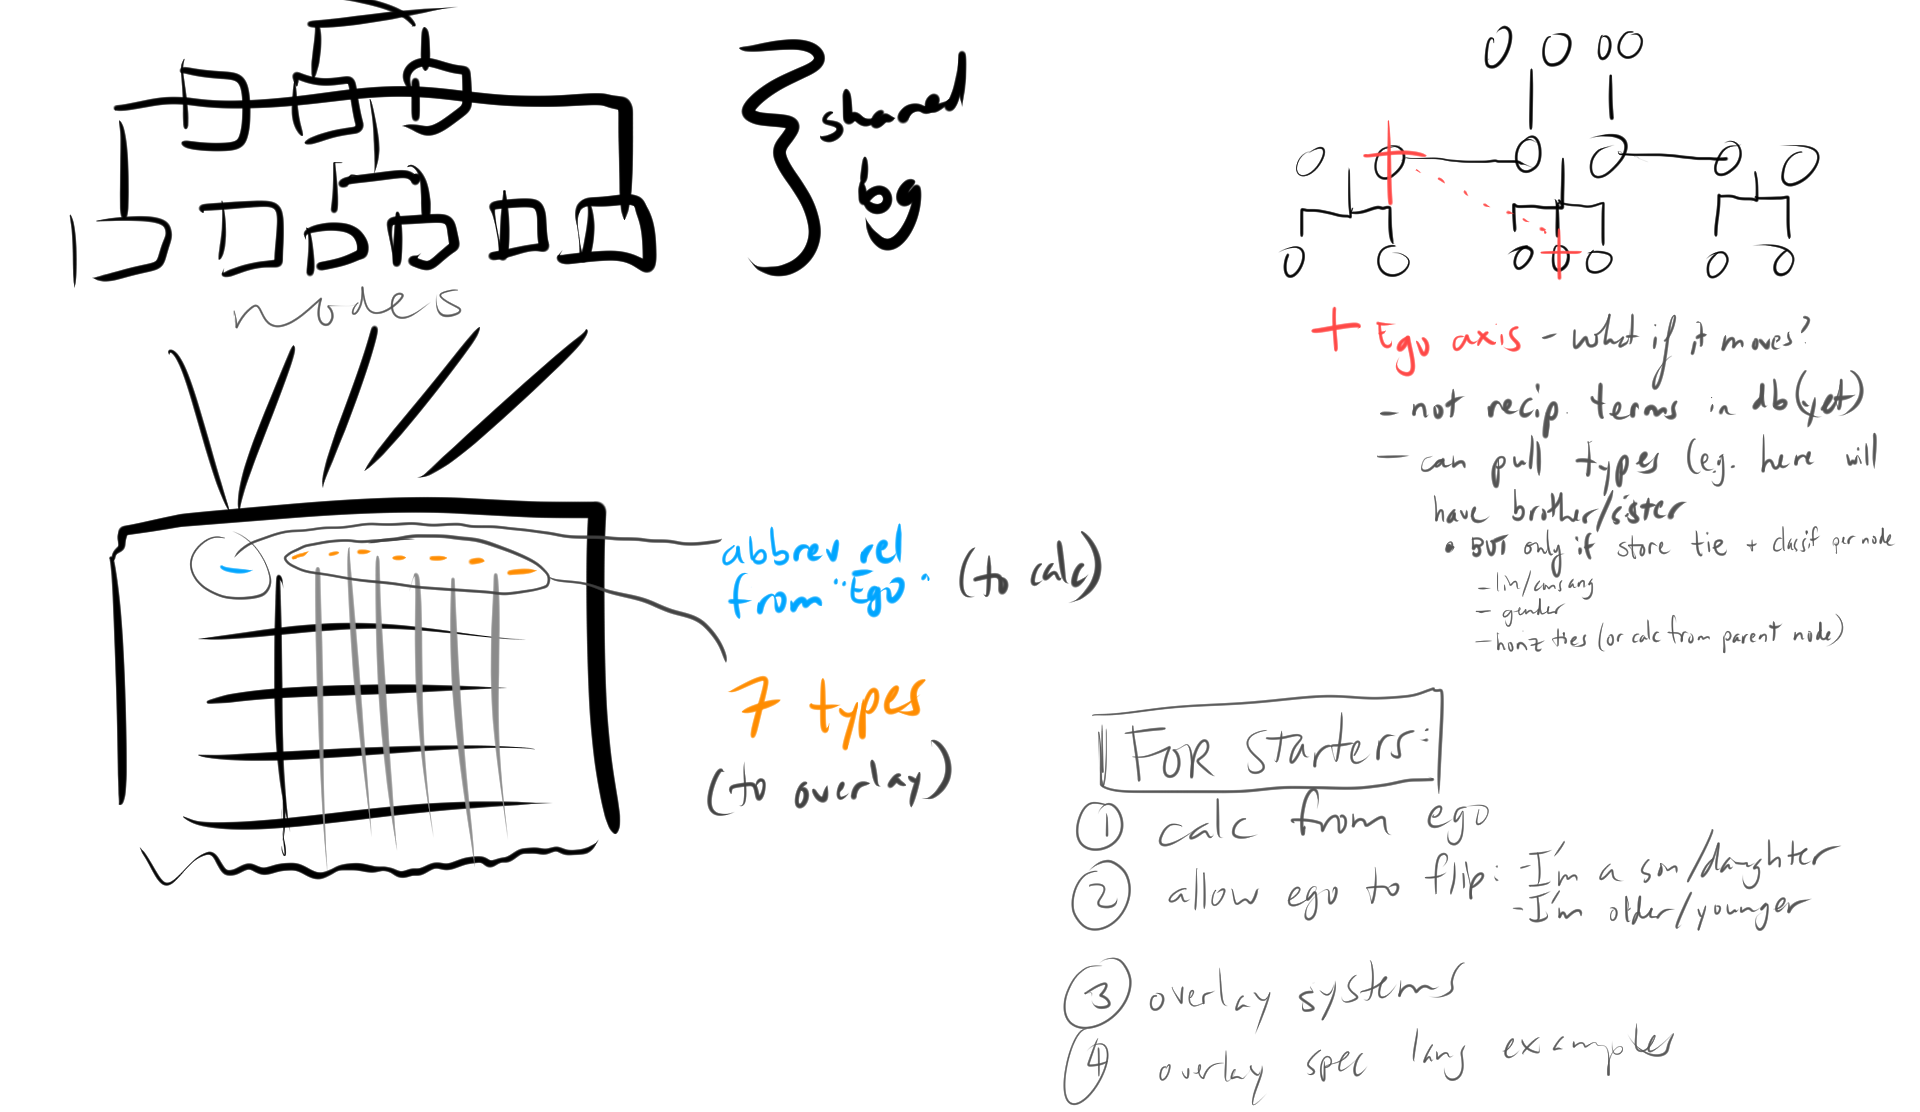 shared
bg
nodes
abbrev rel
from "Ego"
(to calc)
7 types
(to overlay)
+ Ego axis - what if it moves?
- not recip. terms in db (yet)
- can pull types (e.g. here will
have brother/sister
• BUT only if store tie + classif per node
- lin/consang
- gender
- horiz ties (or calc from parent node)
For starters:
1 calc from ego
2 allow ego to flip: - I'm a son/daughter
- I'm older/younger
3 overlay systems
4 overlay spec lang examples